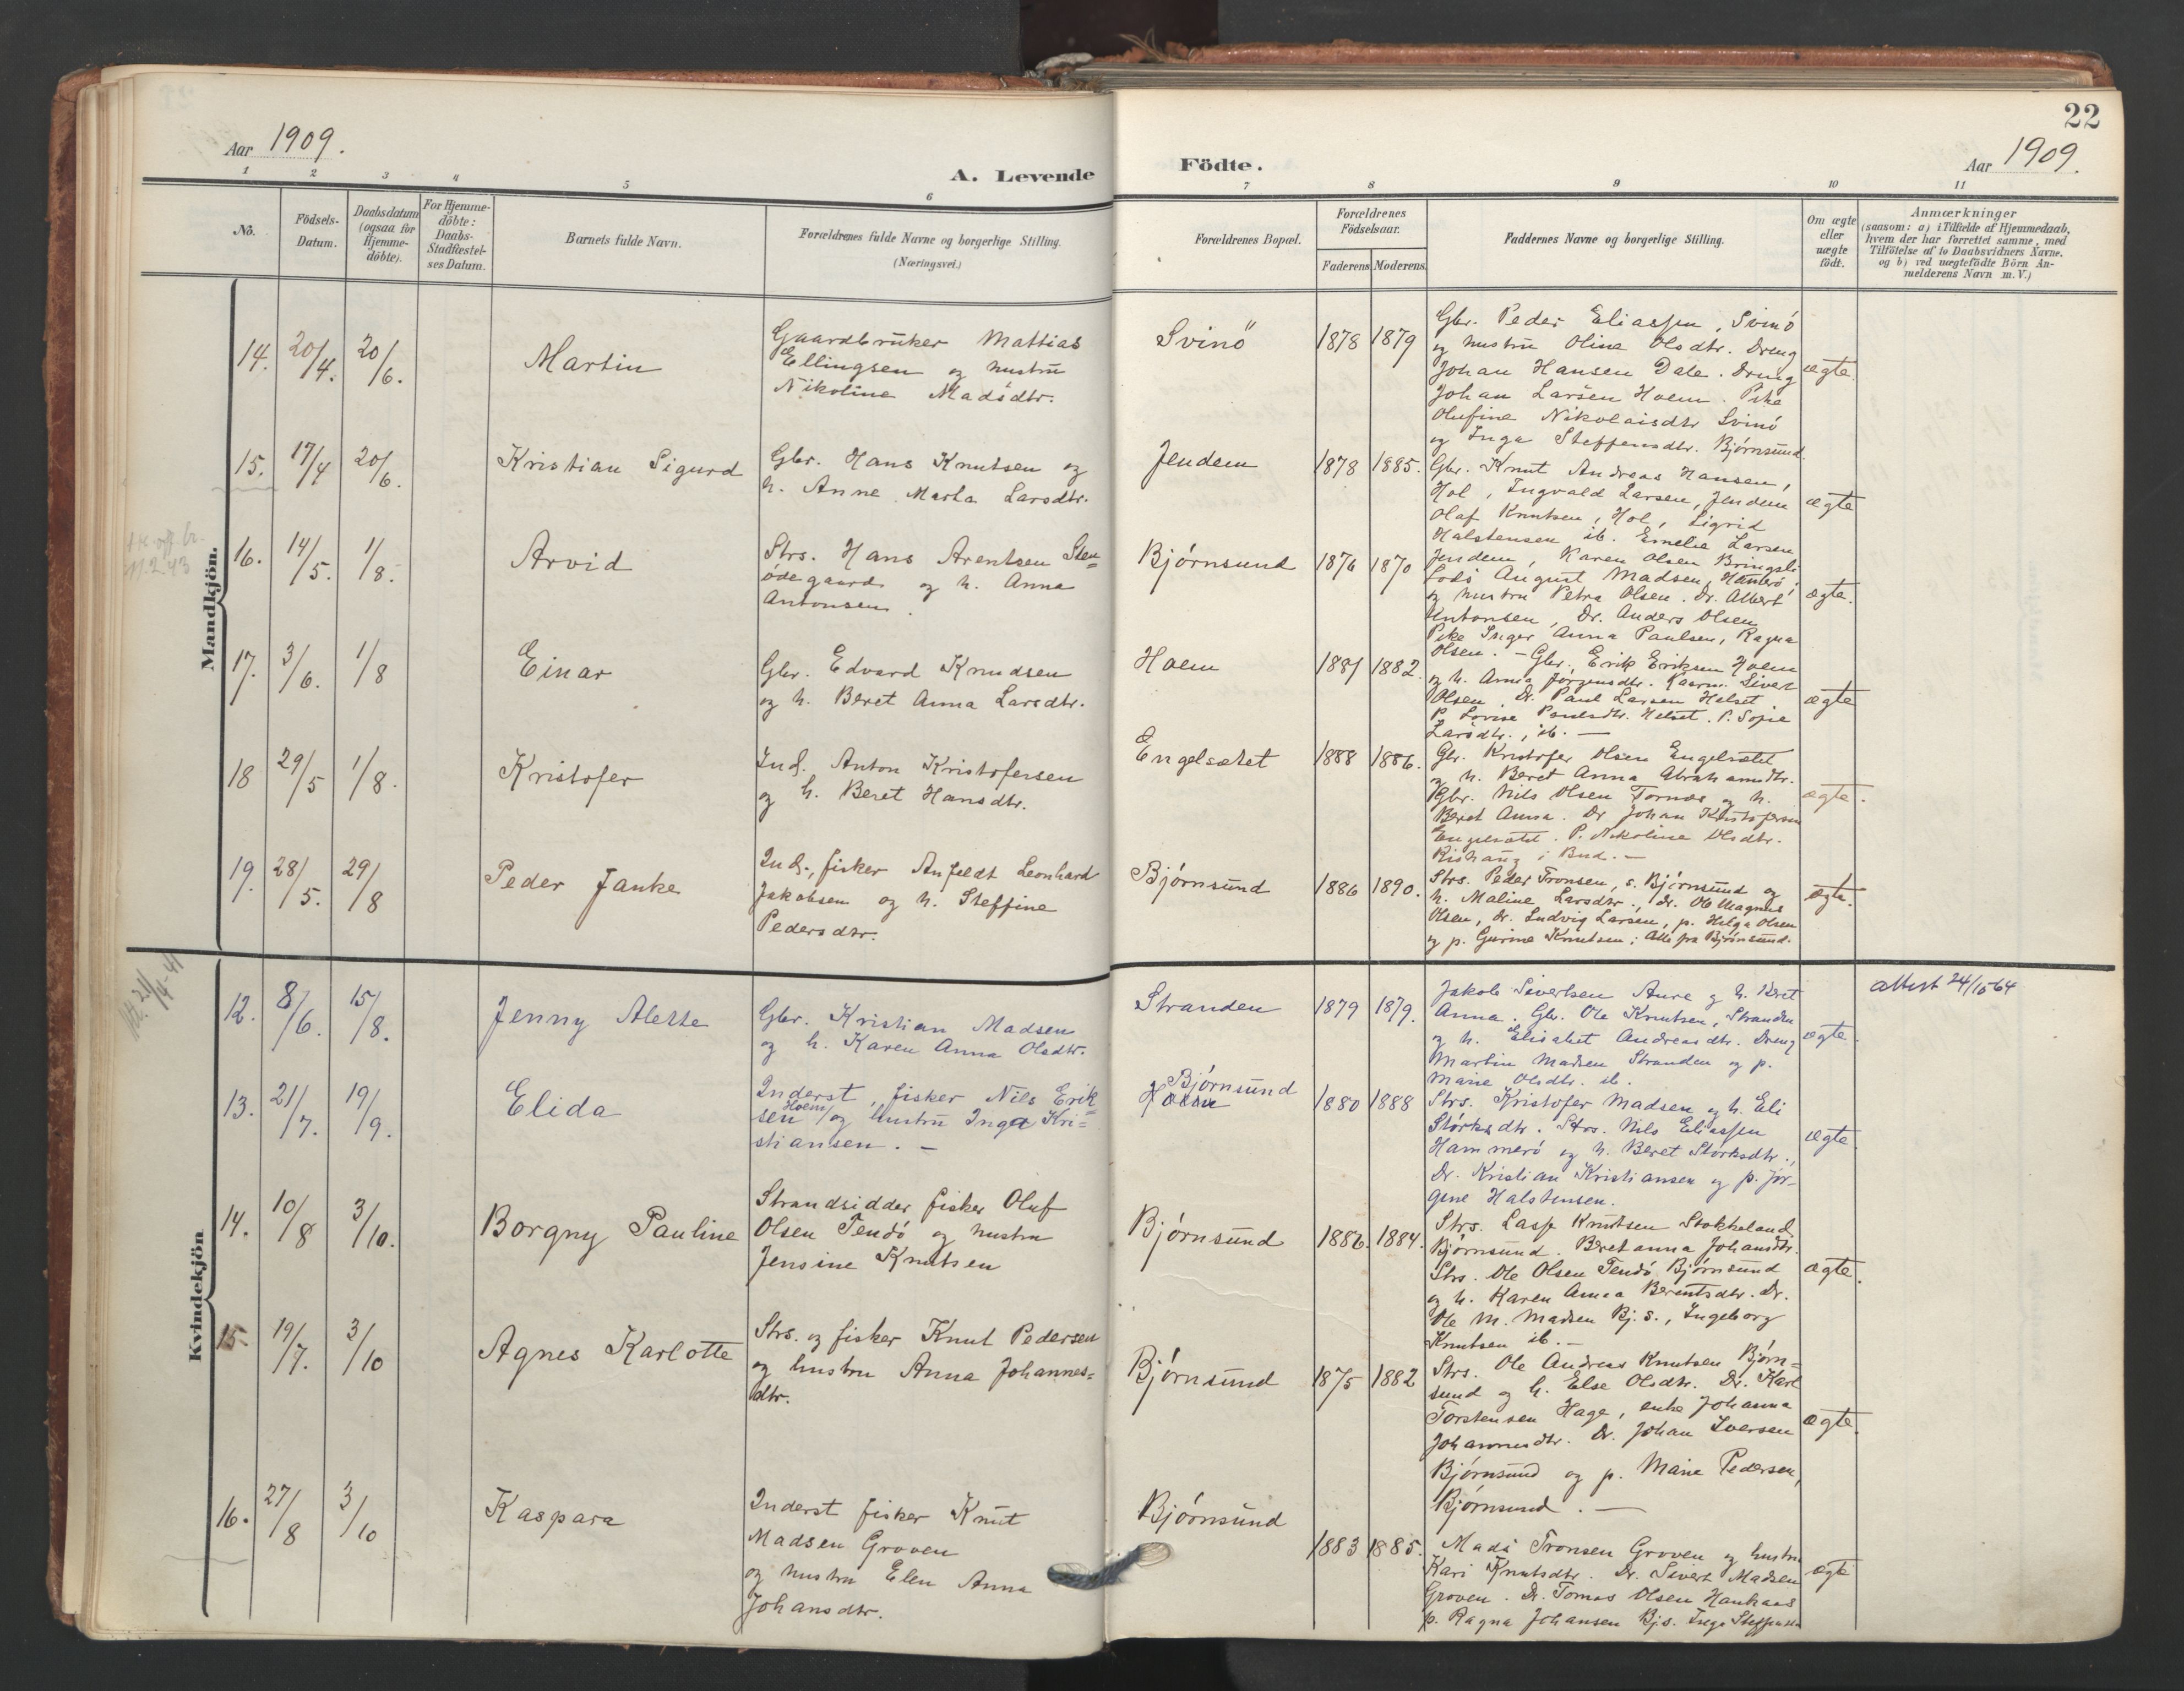 22
Aar 1909.
A. Levende
Födte.
Aar 1909.
1 2 3 4 5 6 7 8 9 10 11
No.
Födsels-
Datum.
Daabsdatum
(ogsaa for
Hjemme-
döbte).
For Hjemme-
döbte:
Daabs-
Stadfæstel-
ses Datum.
Barnets fulde Navn.
Forældrenes fulde Navne og borgerlige Stilling.
(Næringsvei.)
Forældrenes Bopæl.
Forældrenes
Födselsaar.
Faderens Moderens.
Faddernes Navne og borgerlige Stilling.
Om ægte
eller
uægte
födt.
Anmærkninger
(saasom: a) i Tilfælde af Hjemmedaab,
hvem der har forrettet samme, med
Tilföielse af to Daabsvidners Navne.
og b) ved uægtefödte Börn An-
melderens Navn m. V.)
Mandkjön.
14. 20/4. 20/6. Martin
Gaardbruker Mattias
Ellingsen og hustru
Nikoline Madsdtr.
Svinö 1878 1879
Gbr. Peder Eliassen, Svinö
og hustru Oline Olsdtr. Dreng
Johan Hansen Dale. Dreng
Johan Larsen Hoem. Pike
Olufine Nikolaisdtr Svinö
og Inga Steffensdtr. Bjørnsund.
ægte.
15. 17/4 20/6. Kristian Sigurd
Gbr. Hans Knutsen og
h. Anne Marta Larsdtr.
Jendem 1878 1885.
Gbr. Knut Andreas Hansen,
Hol, Ingvald Larsen, Jendem
Olaf Knutsen, Hol, Sigrid
Halstensen ib. Emelie Larsen
Jendem, Karen Olsen Bringsli
ægte
16. 14/5. 1/8. Arvid
Strs. Hans Arentsen Sten=
ødegaard og h. Anna
Antonsen.
Bjørnsund 1876 1870
Lods August Madsen, Hammerö,
og hustru Petra Olsen. Dr. Albert
Antonsen, Dr. Anders Olsen
Pike Inger Anna Paulsen, Ragna
Olsen. –
ægte.
17. 3/6. 1/8 Einar
Gbr. Edvard Knudsen
og h. Beret Anna Larsdtr.
Hoem 1881 1882.
Gbr. Erik Eriksen Hoem
og h. Anna Jørgensdtr. Kaarm. Sivert
Olsen. Dr. Paul Larsen Helset
P. Lovise Paulsdtr. Helset. P. Sofie
Larsdtr., ib. –
ægte
18 29/5 1/8. Kristofer
Ind. Anton Kristofersen
og h. Beret Hansdtr.
Engelsætet 1888 1886.
Gbr. Kristofer Olsen Engelsætet
og h. Beret Anna Abrahamsdtr.
Gbr. Nils Olsen Tornes og h.
Beret Anna. Dr Johan Kristofersen
Engelsætet. P. Nikoline Olsdtr.
Rishaug i Bud. –
ægte.
19. 28/5. 29/8 Peder Janke
Ind., fisker Anfeldt Leonhard
Jakobsen og h. Steffine
Pedersdtr.
Bjørnsund 1886 1890.
Strs. Peder Tronsen, s. Bjørnsund og
h. Maline Larsdtr., dr. Ole Magnus
Olsen, dr. Ludvig Larsen, p. Helga Olsen
og p. Gurine Knutsen; Alle fra Bjørnsund.
ægte.
Kvindekjön
12. 8/6. 15/8. Jenny Alette
Gbr. Kristian Madsen
og h. Karen Anna Olsdtr.
Stranden 1879 1879.
Jakob Sivertsen Aure og h. Beret
Anna. Gbr. Ole Knutsen, Stranden
og h. Elisabet Andreasdtr. Dreng
Martin Madsen Stranden og p.
Marie Olsdtr. ib.
ægte.
attest 24/10 64
13. 21/7. 19/9. Elida
Inderst, fisker Nils Erik=
sen Hoem/og hustru Inga Kri=
stiansen. –
Bjørnsund
Hoem 1880 1888
Strs. Kristofer Madsen og h. Eli
Størksdtr. Strs. Nils Eliassen
Hammerö og h. Beret Størksdtr.,
Dr. Kristian Kristiansen og p. Jør-
gine Halstensen.
ægte.
14. 10/8 3/10. Borgny Pauline
Strandsidder fisker Oluf
Olsen Tendö og hustru
Jensine Knutsen
Bjørnsund 1886. 1884.
Strs. Lasse Knutsen Stokkeland
Bjørnsund. Beret anna Johansdtr.
Strs. Ole Olsen Tendö Bjørnsund
og h. Karen Anna Berentsdtr. Dr.
Ole M. Madsen Bj. s., Ingeborg
Knutsen ib. –
ægte.
15. 19/7. 3/10 Agnes Karlotte
Strs. og fisker Knut Pedersen
og hustru Anna Johannes=
dtr.
Bjørnsund 1875 1882
Strs. Ole Andreas Knutsen Bjørn=
sund og h. Else Olsdtr. Dr. Karl
Torstensen Hage, enke Johanna
Johannesdtr. Dr. Johan Iversen
Bjørnsund og p. Marie Pedersen,
Bjørnsund. –
ægte.
16. 27/8 3/10 Kaspara
Inderst fisker Knut
Madsen Groven
og hustru Elen Anna
Johansdtr.
Bjørnsund 1883 1885.
Mads Tronsen Groven og hustru
Kari Knutsdtr. Dr. Sivert Madsen
Groven. Dr. Tomas Olsen Haukaas
p. Ragna Johansen Bj.s. Inga Steffensen
ægte